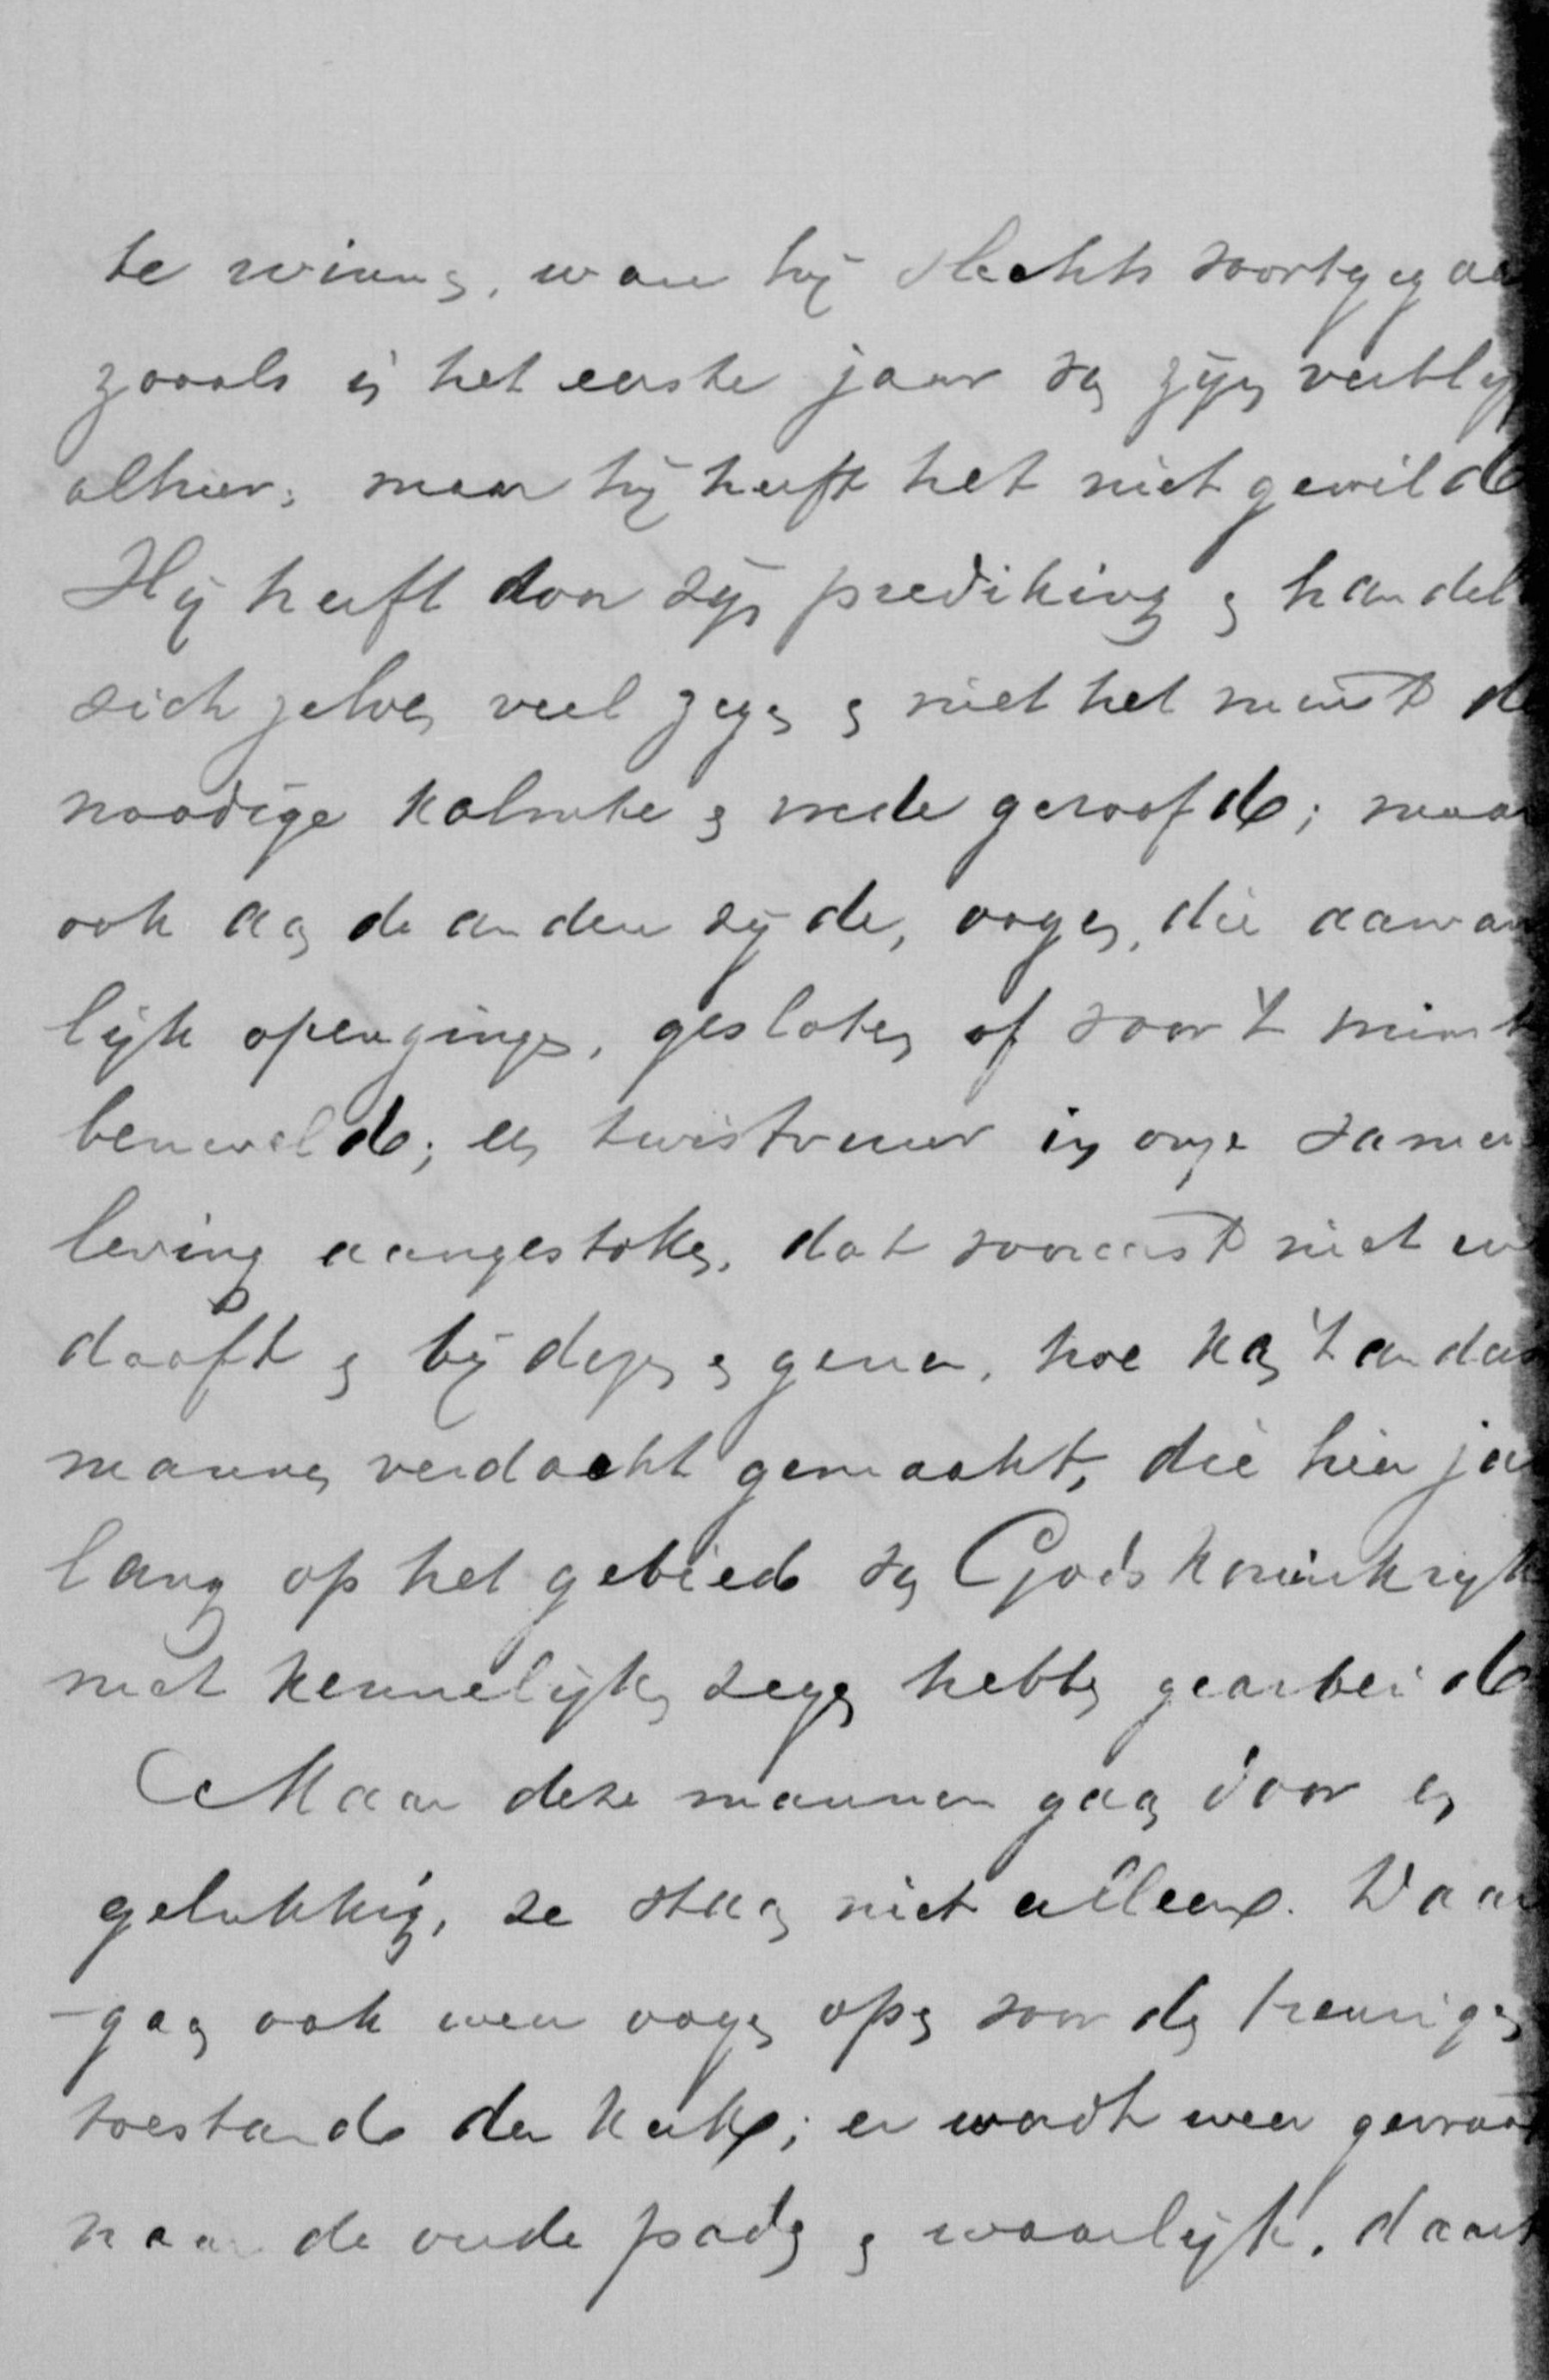 te winnen, ware hij slechts voortgegaa
zooals in het eerste jaar van zijn verblij
alhier; maar hij heeft het niet gewild
Hij heeft door zijn prediking en handel
zich zelven veel zegen en niet het minst de
noodige kalmte en vrede geroofd; maar
ook aan de andere zijde, oogen, die aanvan
lijk opengingen, gesloten of voor 't minst
beneveld; een twistvuur in onze samen
leving aangestoken, dat vooreerst niet
dooft en bij dezen en genen, hoe kan 't anders
mannen verdacht gemaakt, die hier ja
lang op het gebied van Gods koninkrijk
met kennelijken zegen hebben gearbeid
Maar deze mannen gaan door en
gelukkig, ze staan niet alleen. Daar
gaan ook weer oogen open voor den treurigen
toestand der kerk; er wordt weer gevraa
naar de oude paden en waarlijk, daar